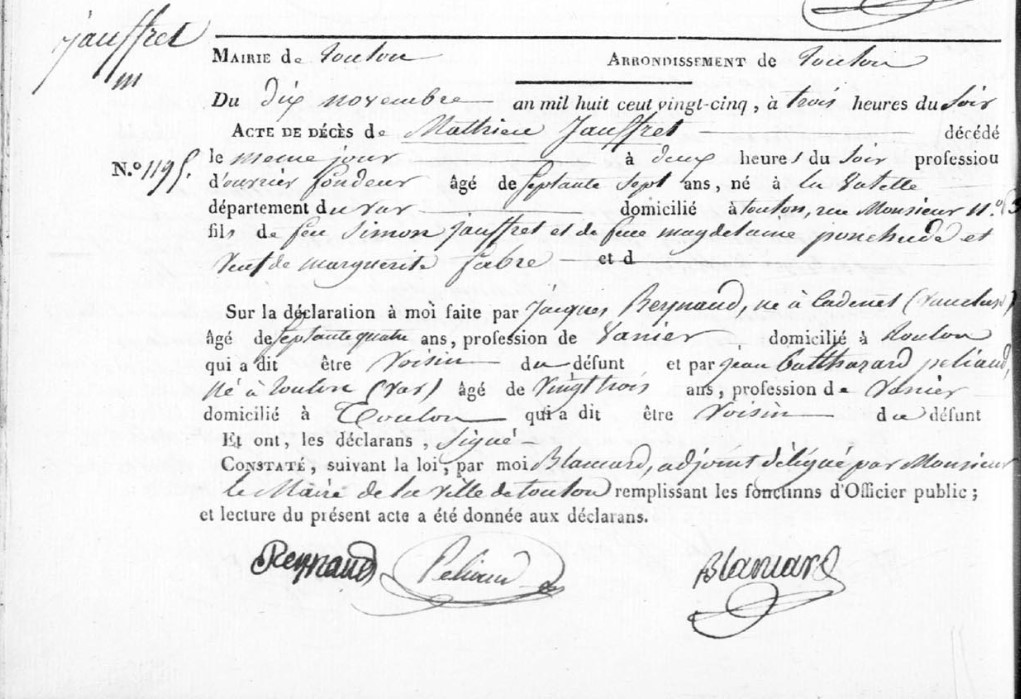 Jauffret
m
MAIRIE de Toulon ARRONDISSEMENT de Toulon
Du dix novembre an mil huit cent vingt-cinq, à trois heures du soir
ACTE DE DÉCÈS de Mathieu Jauffret décédé
N.º 1195. le meme jour à deux heures du soir profession
d'ouvrier fondeur âgé de septante sept ans, né à la Valette
département du var domicilié à toulon, rue Monsieur n.º
fils de feu Simon Jauffret et de feue magdelaine et
veuf de marguerite fabre et d
Sur la déclaration à moi faite par Jacques Reynaud, né à Cadenet (Vaucluse)
âgé de septante quatre ans, profession de Vanier domicilié à Toulon
qui a dit être Voisin du défunt et par jean Balthazard peliaud,
né à Toulon (Var) âgé de Vingt trois ans, profession de Vanier
domicilié à Toulon qui a dit être Voisin du défunt
Et ont, les déclarans, Signé
CONSTATÉ, suivant la loi, par moi Blancard, adjoint délégué par Monsieur
le Maire de la ville de toulon remplissant les fonctinns d'Officier public ;
et lecture du présent acte a été donnée aux déclarans.
Reynaud Peliaud Blancard